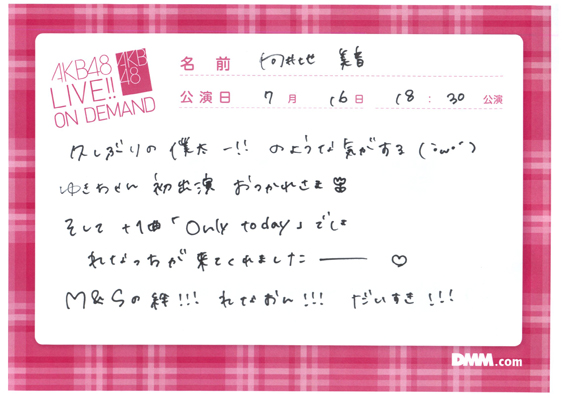 AKB48
LIVE!!
ON DEMAND
AKB
48
名前 向井地 美音
公演日 7月 16日 18:30 公演
久しぶりの僕太ー!! のような気がする (´・ω・`)
ゆきわせん 初出演 おつかれさま
そして +1曲「Only today」では
れなっちが来てくれました ―― ♡
M&Sの絆!!! れなおん!!! だいすき!!!
DMM.com